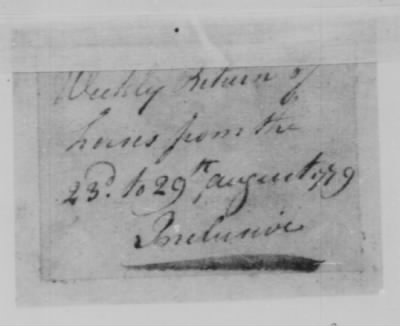 Weekly Return of
horses from the
23d. to 29th. august 1779
Inclusive